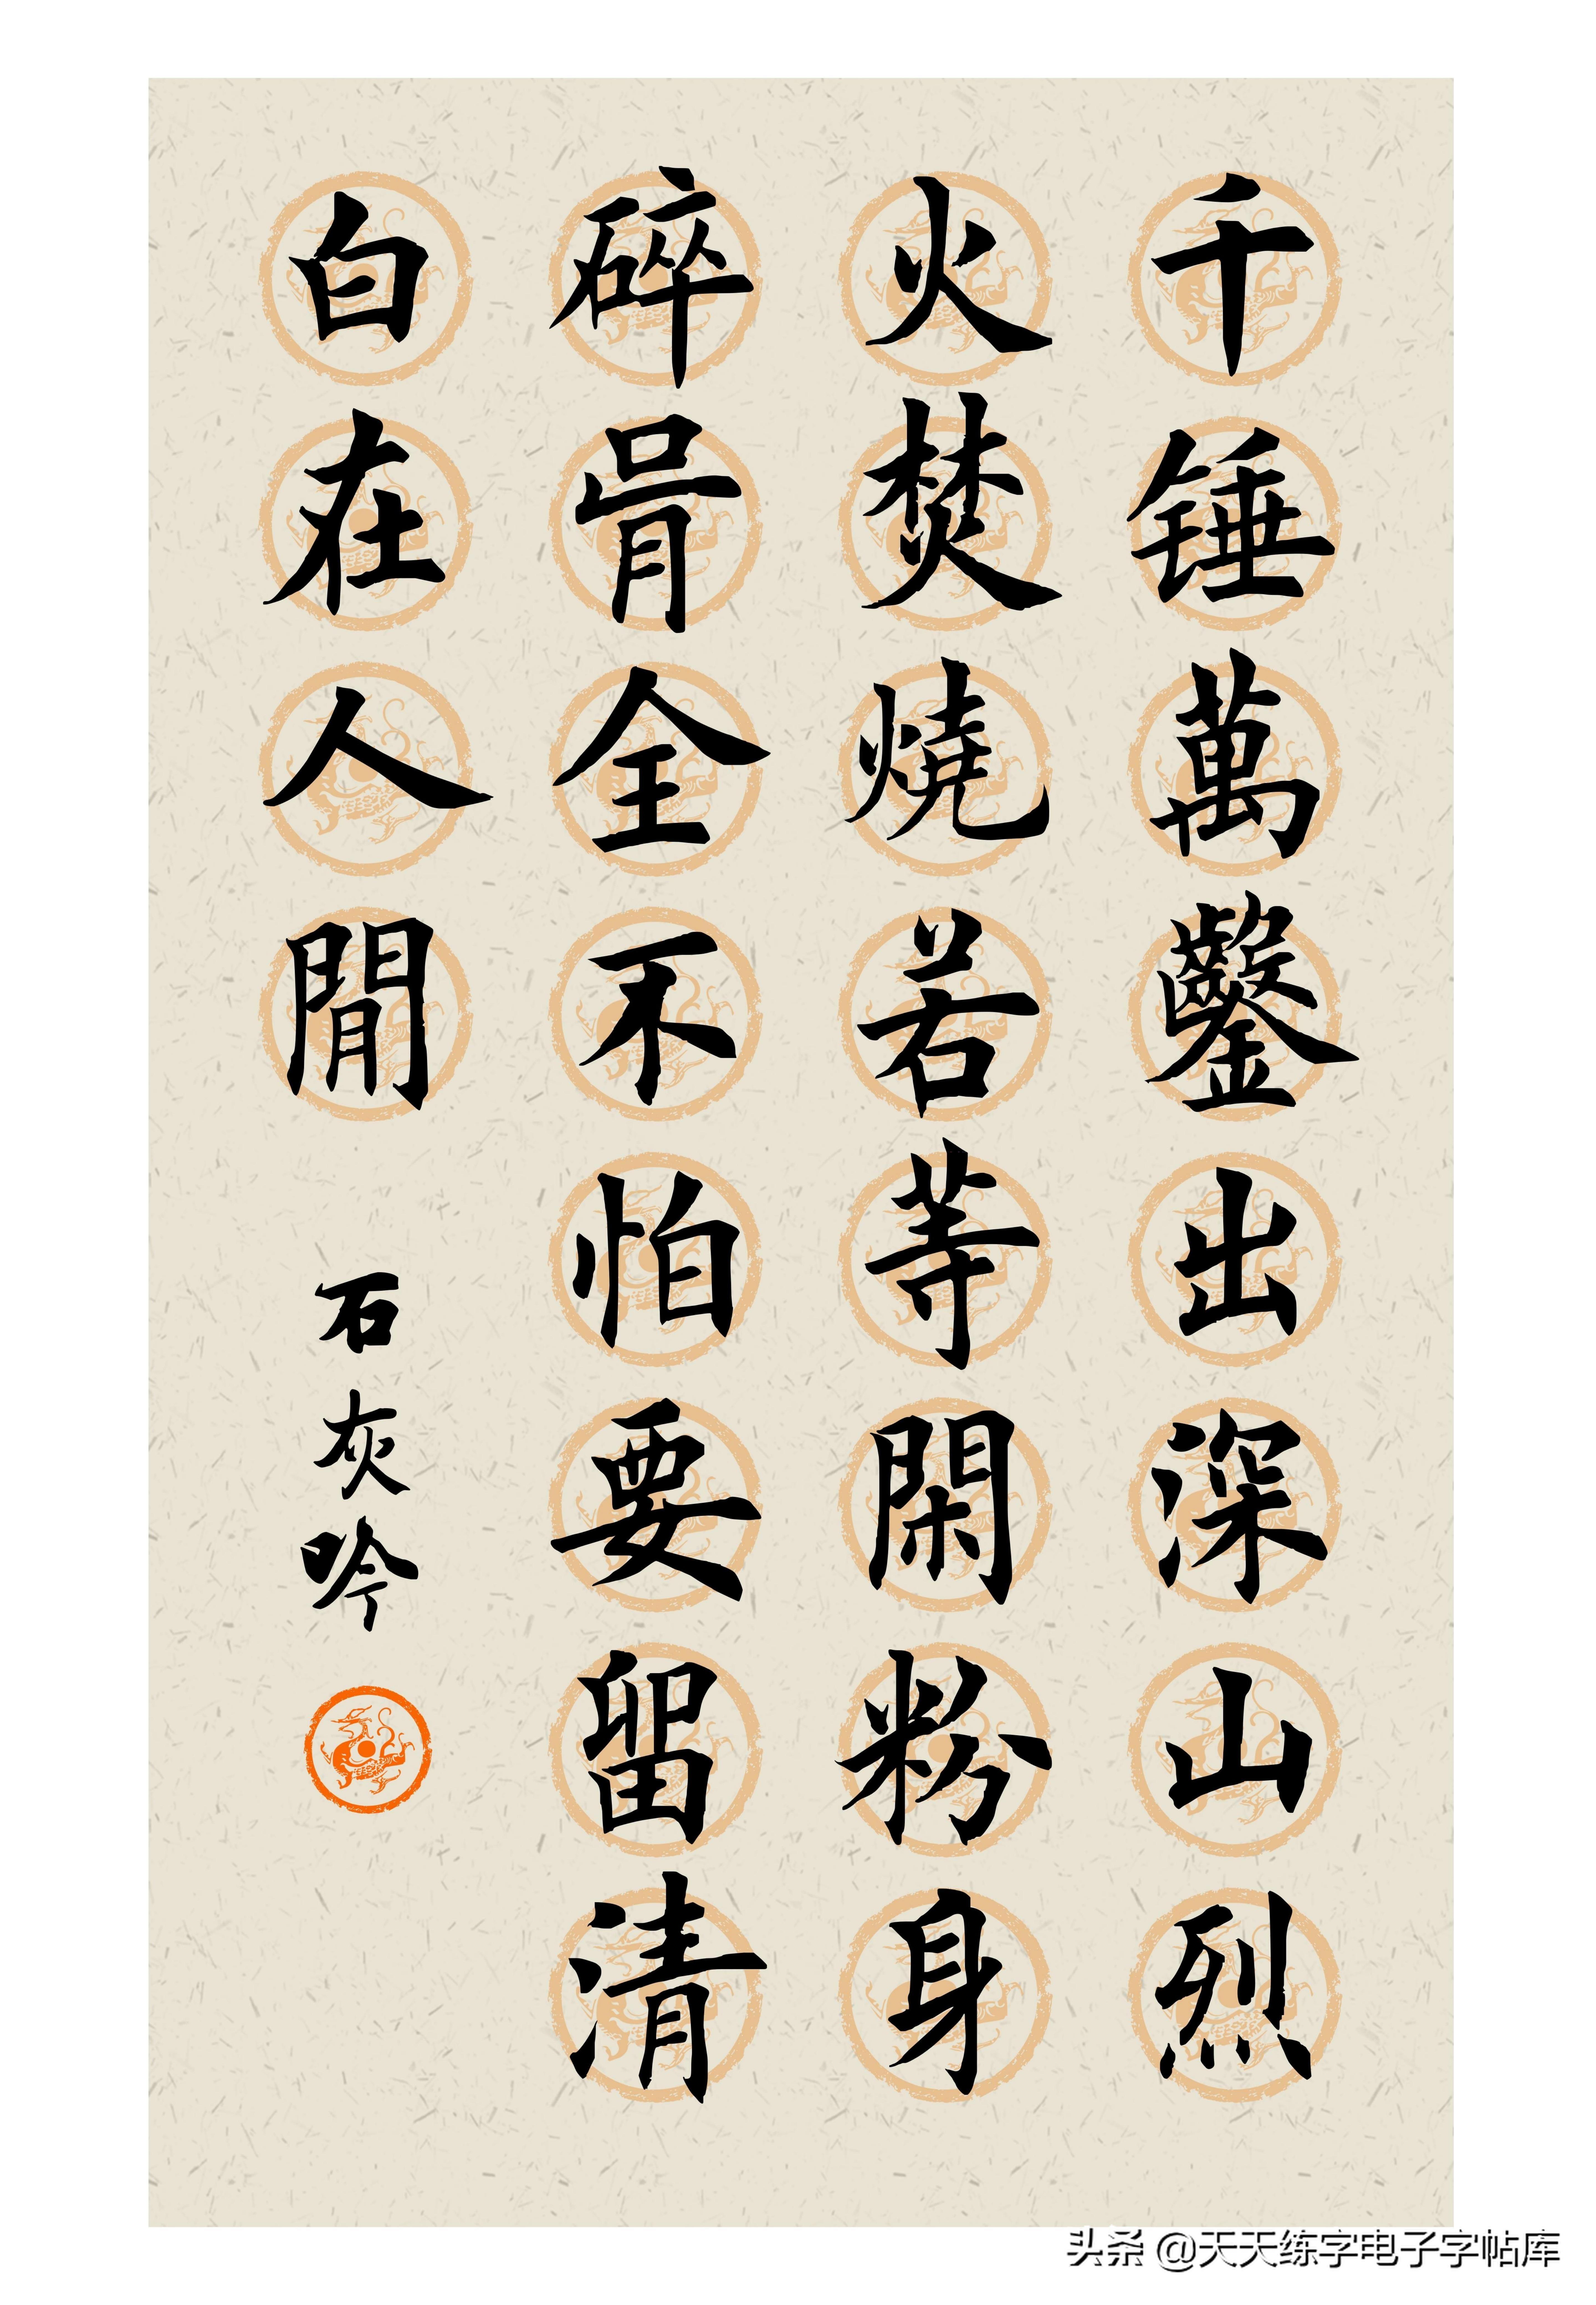 千锤萬鑿出深山烈
火焚燒若等閑粉身
碎骨全不怕要留清
白在人間
石灰吟
头条 @天天练字电子字帖库